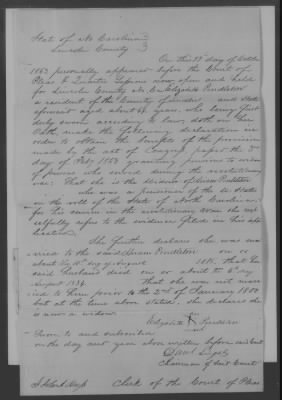 State of No Carolina
Lincoln County
On this 19th day of October
1853 personally appeared before the Court of
Pleas & Quarter Sessions now open and held
for Lincoln County Elizabeth Pendleton
a resident of the County of and State
aforesaid aged about 64 years, who being first
duly sworn according to law, doth on her
Oath, make the following declaration in
order to obtain the benefits of the provision
made by the act of Congress passed the 3
day of Feby 1853 granting pensions to widows
of persons who served during the revolutionary
war: That she is the widow of Hiram Pendleton
who was a pensioner of the U. States
on the roll of the State of North Carolina
for his service in the revolutionary war she res
pectfully refers to the evidence filed in his ap
plication.
She further declares she was mar
ried to the said Hiram Pendleton on or
about the day of August that her
said husband died on or about the 6th day
August 1834 that she was not mar
ried to him prior to the 2nd of January 1800
but at the time above stated; she declares she
is now a widow.
Elizabeth X Pendleton
Sworn to and subscribed
on the day and year above written before said Court
Chairman of said Court
Clerk of the Court of Pleas